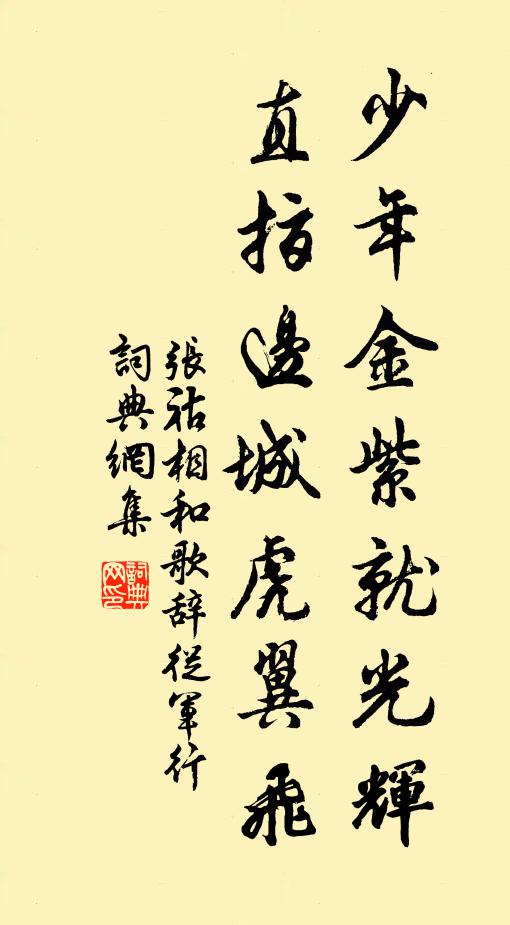 少年金紫就光輝
直指邊城虎翼飛
張祜相和歌辞從軍行
詞典網集
詞典网印